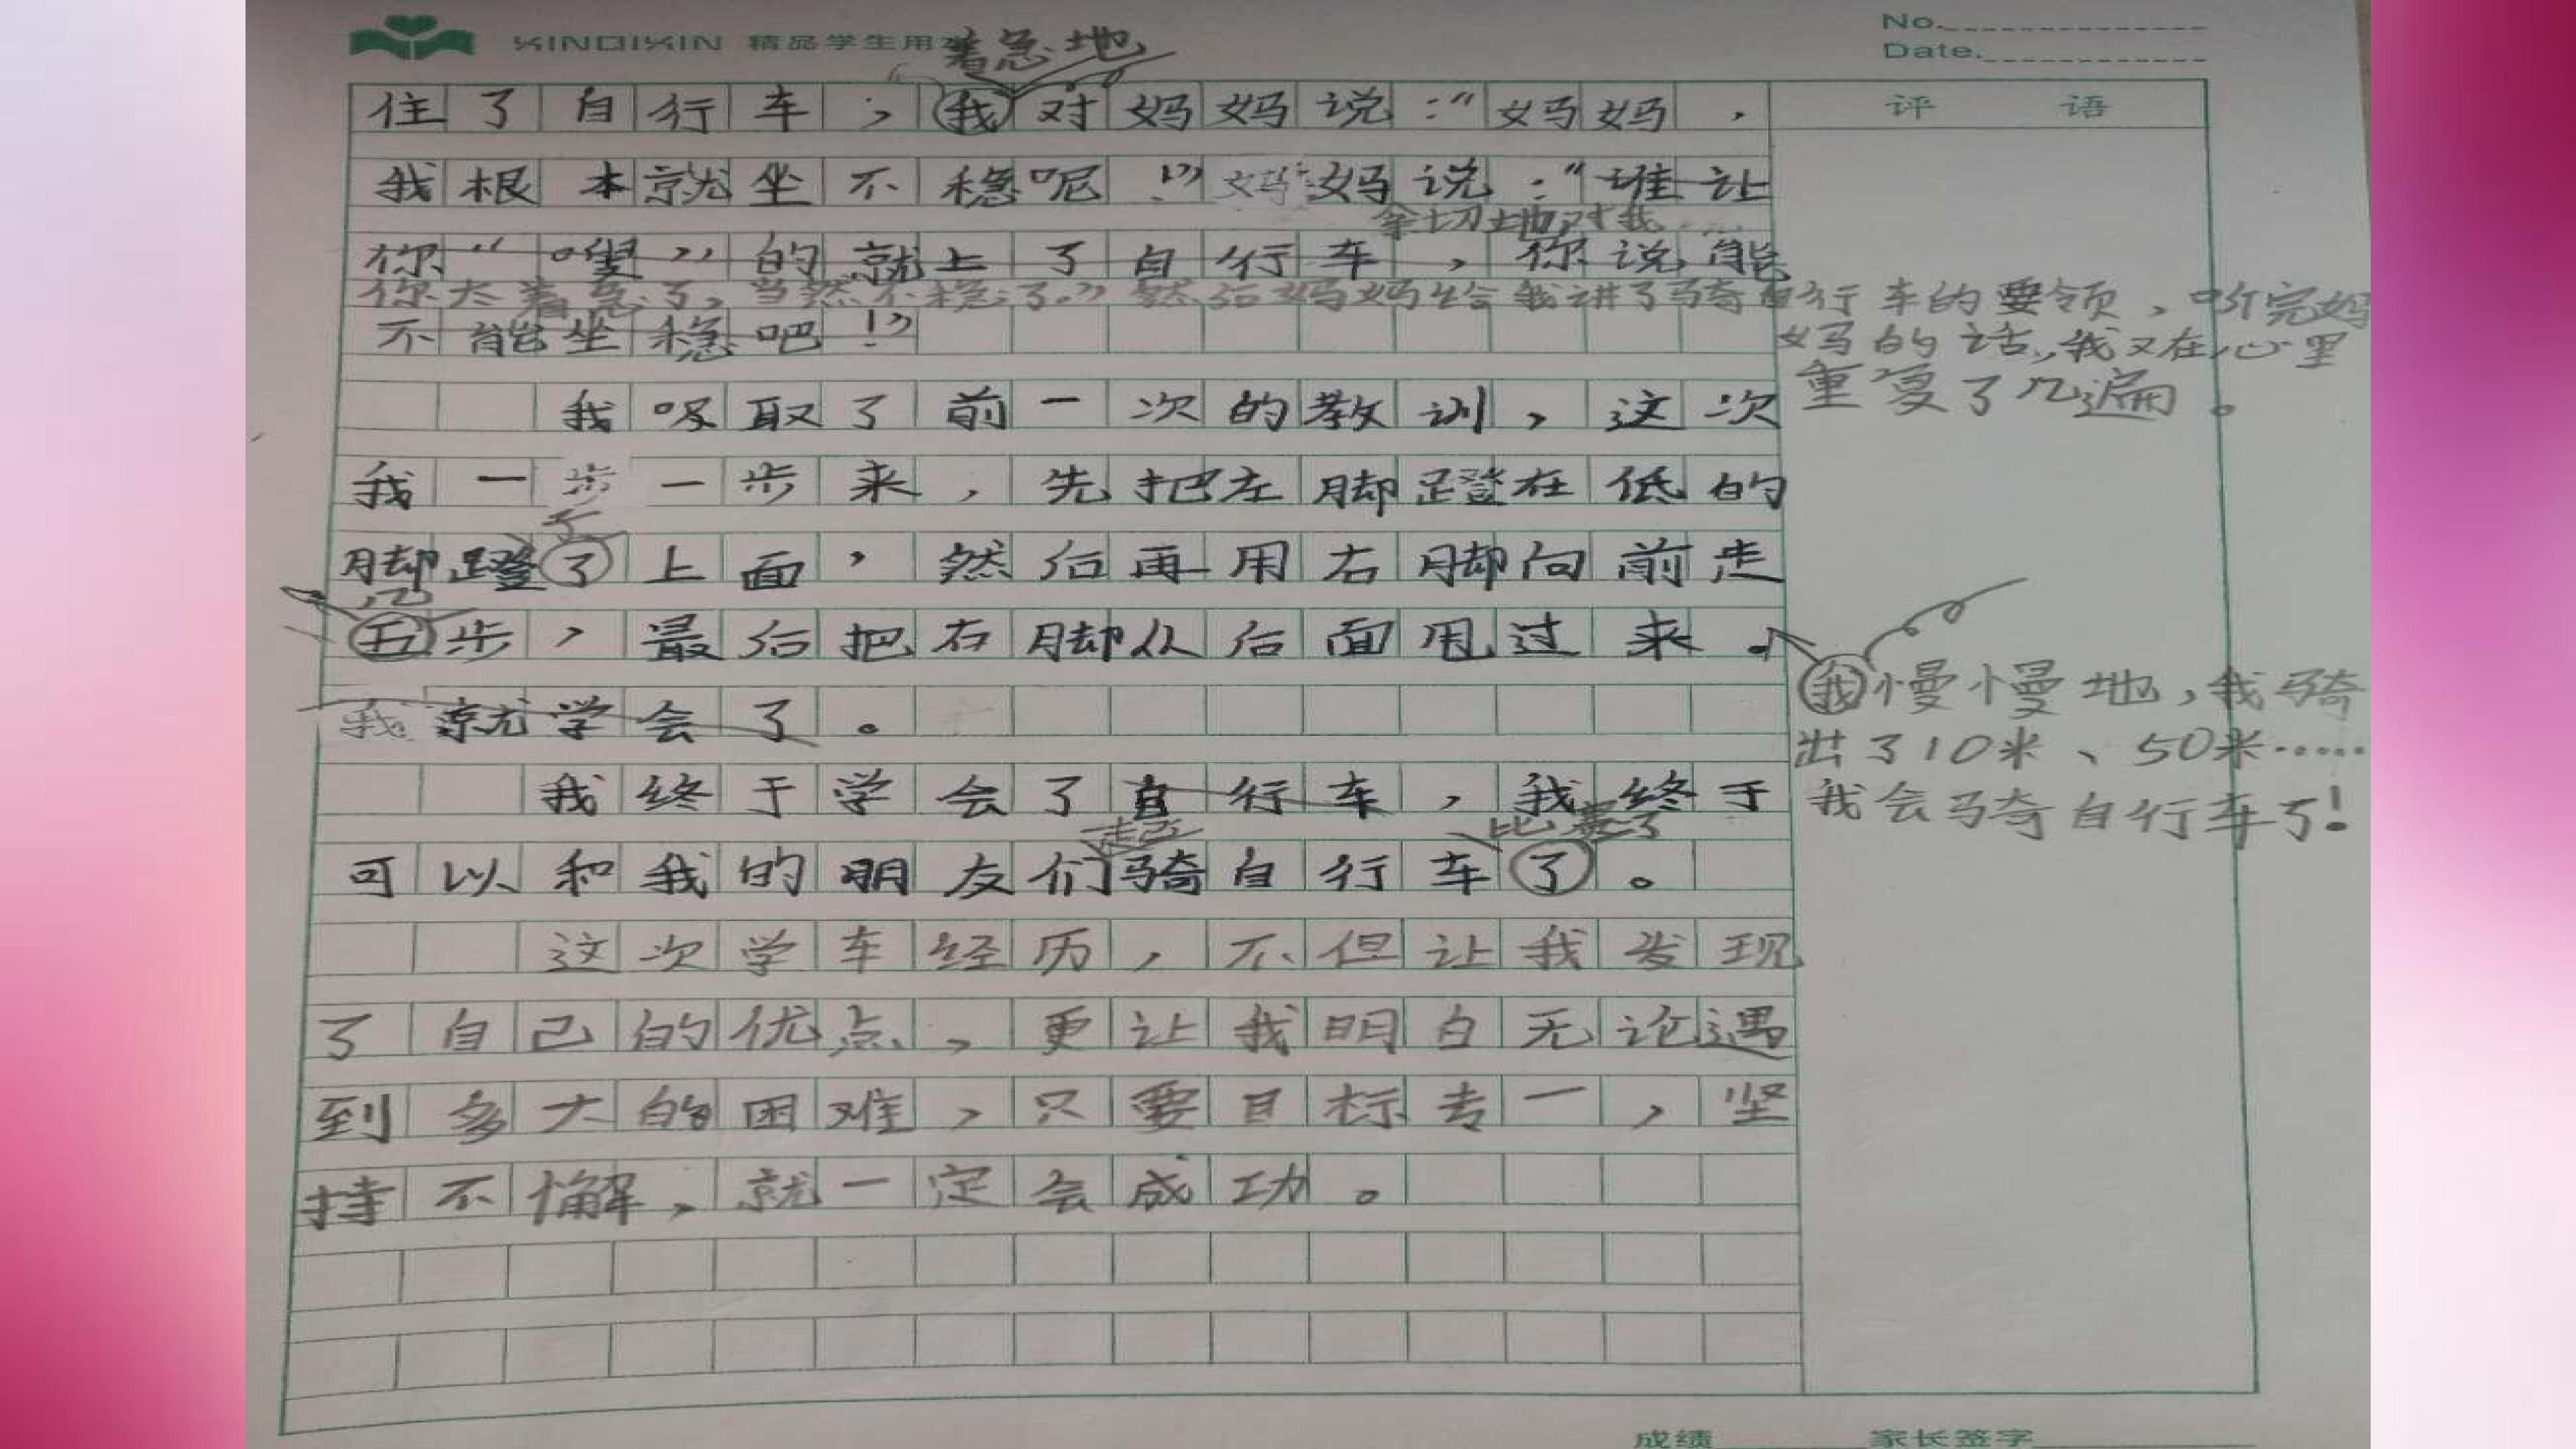 XINQIXIN 精品学生用
No.
Date.
着急地
住了自行车，我对妈妈说：“妈妈，
评 语
我根本就坐不稳呢！”妈妈说：“谁让
亲切地对我……
你“嗖”的就上了自行车，你说能
你太着急了，当然不稳了。”然后妈妈给我讲了骑自行车的要领，听完妈
不能坐稳吧！”
妈的话，我又在心里
重复了几遍。
我吸取了前一次的教训，这次
我一步一步来，先把左脚蹬在低的
脚蹬了上面，然后再用右脚向前走
几
五步，最后把右脚从后面甩过来。
我慢慢地，我骑
我就学会了。
出了10米、50米……
我终于学会了自行车，我终于
我会骑自行车了！
比赛了
可以和我的朋友们骑自行车了。
这次学车经历，不但让我发现
了自己的优点，更让我明白无论遇
到多大的困难，只要目标专一，坚
持不懈，就一定会成功。
成绩 家长签字